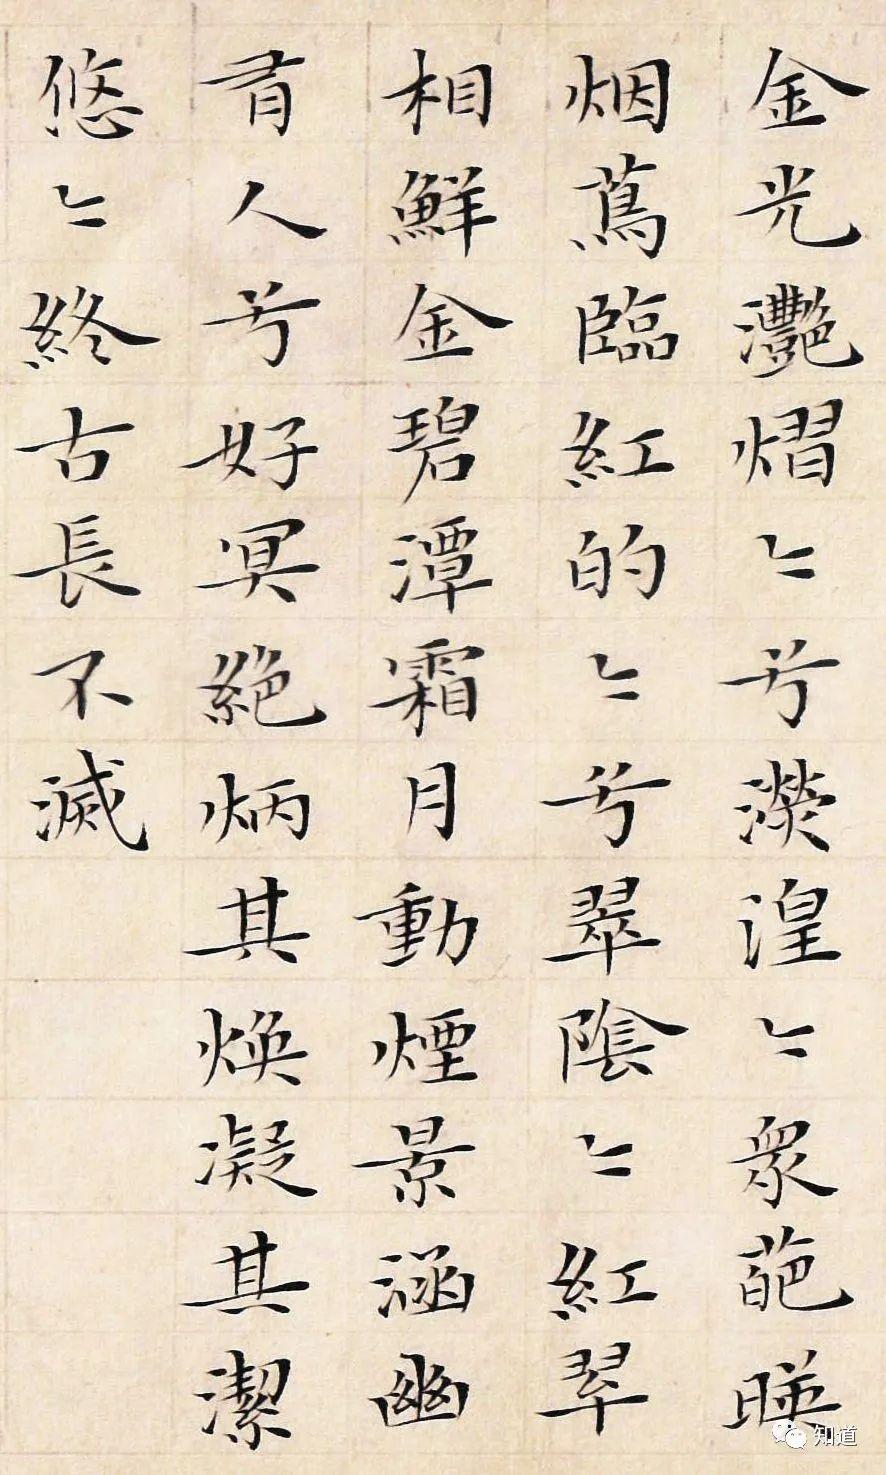 金光灩熠〻兮濴湟〻衆葩暎
烟蔦臨紅的〻兮翠陰〻紅翠
相鮮金碧潭霜月動煙景涵幽
有人兮好冥絶炳其焕凝其潔
悠〻終古長不滅
知道